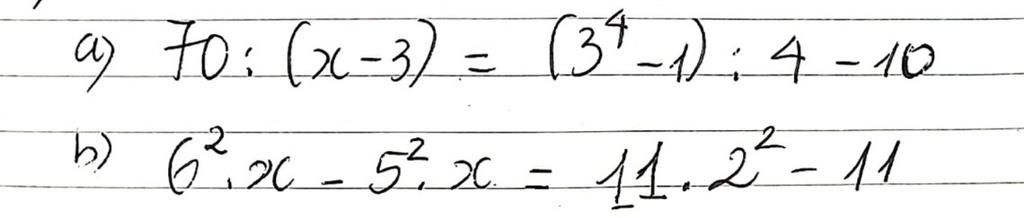 a) 70 : (x - 3) = (3⁴ - 1) : 4 - 10
b) 6² . x - 5² . x = 11 . 2² - 11